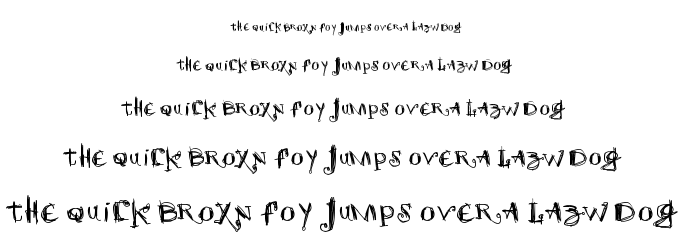 tHE QUiCK BROXN FOY JUMPS OVER A LAZW DOG
tHE QUiCK BROXN FOY JUMPS OVER A LAZW DOG
tHE QUiCK BROXN FOY JUMPS OVER A LAZW DOG
tHE QUiCK BROXN FOY JUMPS OVER A LAZW DOG
tHE QUiCK BROXN FOY JUMPS OVER A LAZW DOG